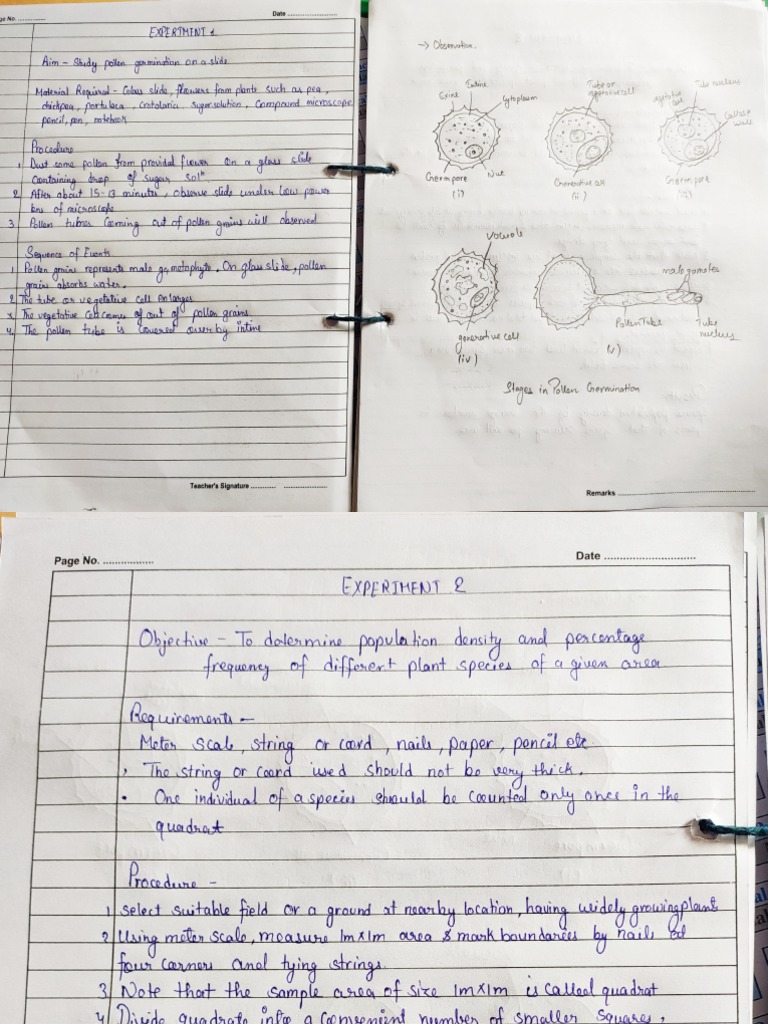 Page No. ................
Date ............................
EXPERIMENT 1
Aim - Study pollen germination on a slide
Material Required - Cobas slide, flowers from plants such as pea,
chickpea, portulaca, crotolaria sugar solution, Compound microscope
pencil, pen, notebook
Procedure
1 Dust some pollen from provided flower on a glass slide
containing drop of sugar soln
2 After about 15-13 minutes, observe slide under low power
lens of microscope
3 Pollen tubes coming out of pollen grains will observed
Sequence of Events
1 Pollen grains represents male gametophyte. On glass slide, pollen
grain absorbs water.
2 The tube or vegetative cell enlarges
3 The vegetative cell comes of out of pollen grains
4 The pollen tube is covered over by intine
Teacher's Signature ............ ....................
→ Observation.
Exine Intine Cytoplasm
Germpore Nuc
(i)
Tube or
cell
Generative cell
(ii)
Tube nucleus
cell
wall
Germpore
Vacuole
generative cell
(iv)
male gametes
Pollen Tube
Tube
nucleus
(v)
Stages in Pollen Germination
Remarks ............................
Page No. ................
Date ............................
EXPERIMENT 2
Objective - To determine population density and percentage
frequency of different plant species of a given area
Requirements -
Meter scale, string or coord, nails, paper, pencil etc.
• The string or coord used should not be very thick.
• One individual of a species should be counted only once in the
quadrat
Procedure -
1 select suitable field or a ground at nearby location, having widely growing plant
2 Using meter scale, measure 1m×1m area & mark boundaries by nails at
four corners and tying strings.
3 Note that the sample area of size 1m×1m is called quadrat
4 Divide quadrate into a convenient number of smaller squares,